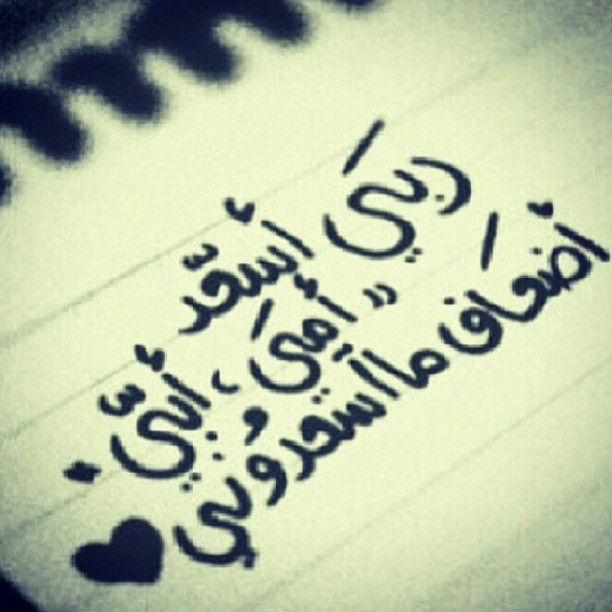 ربيَ أسعدّ
" أميَ ، أبيّ .
أضعاف ما اسعدوُني ♥